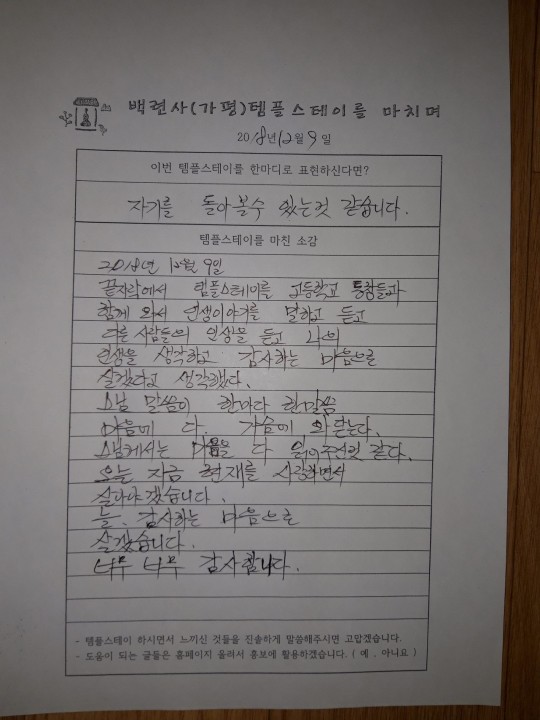 백련사(가평)템플스테이를 마치며
2018년12월9일
이번 템플스테이를 한마디로 표현하신다면?
자기를 돌아볼수 있는것 같습니다.
템플스테이를 마친 소감
2018년 12월 9일
끝자락에서 템플스테이를 고등학교 동창들과
함께 와서 인생이야기를 말하고 듣고
다른 사람들의 인생을 듣고 나의
인생을 생각하고 감사하는 마음으로
살겠다고 생각했다.
스님 말씀이 한마디 한말씀
마음에 다. 가슴에 와 닫는다.
스님께서는 마음을 다 읽어주신것 같다.
오늘 지금 현재를 사랑하면서
살아야겠습니다.
늘. 감사하는 마음으로
살겠습니다.
너무 너무 감사합니다.
- 템플스테이 하시면서 느끼신 것들을 진솔하게 말씀해주시면 고맙겠습니다.
- 도움이 되는 글들은 홈페이지 올려서 홍보에 활용하겠습니다. ( 예 . 아니요 )